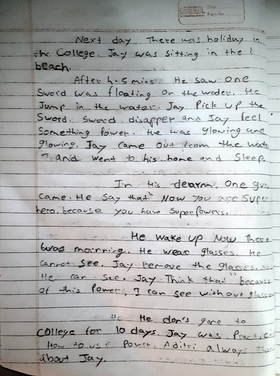 Next day. There was holiday in
the College. Jay was sitting in the
beach.
After 4-5 mins. He saw One
Sword was floating on the water. He
Jump in the water. Jay Pick up the
Sword. Sword disapper and Jay feel
Something power. He was glowing and
glowing. Jay came out from the
and went to his home and Sleep.
In His dearm. One
Came. He Say that" Now you are super
hero. because you have Superpowers.
He wake up. Now There
was mornning. He wear glasses. He
Cannot see. Jay remove the glasses.
He can see. Jay Think that "because
of this Power, I can see without
He don't gone to
College for 10 days. Jay was
How to use Power. Aditri always
about Jay.